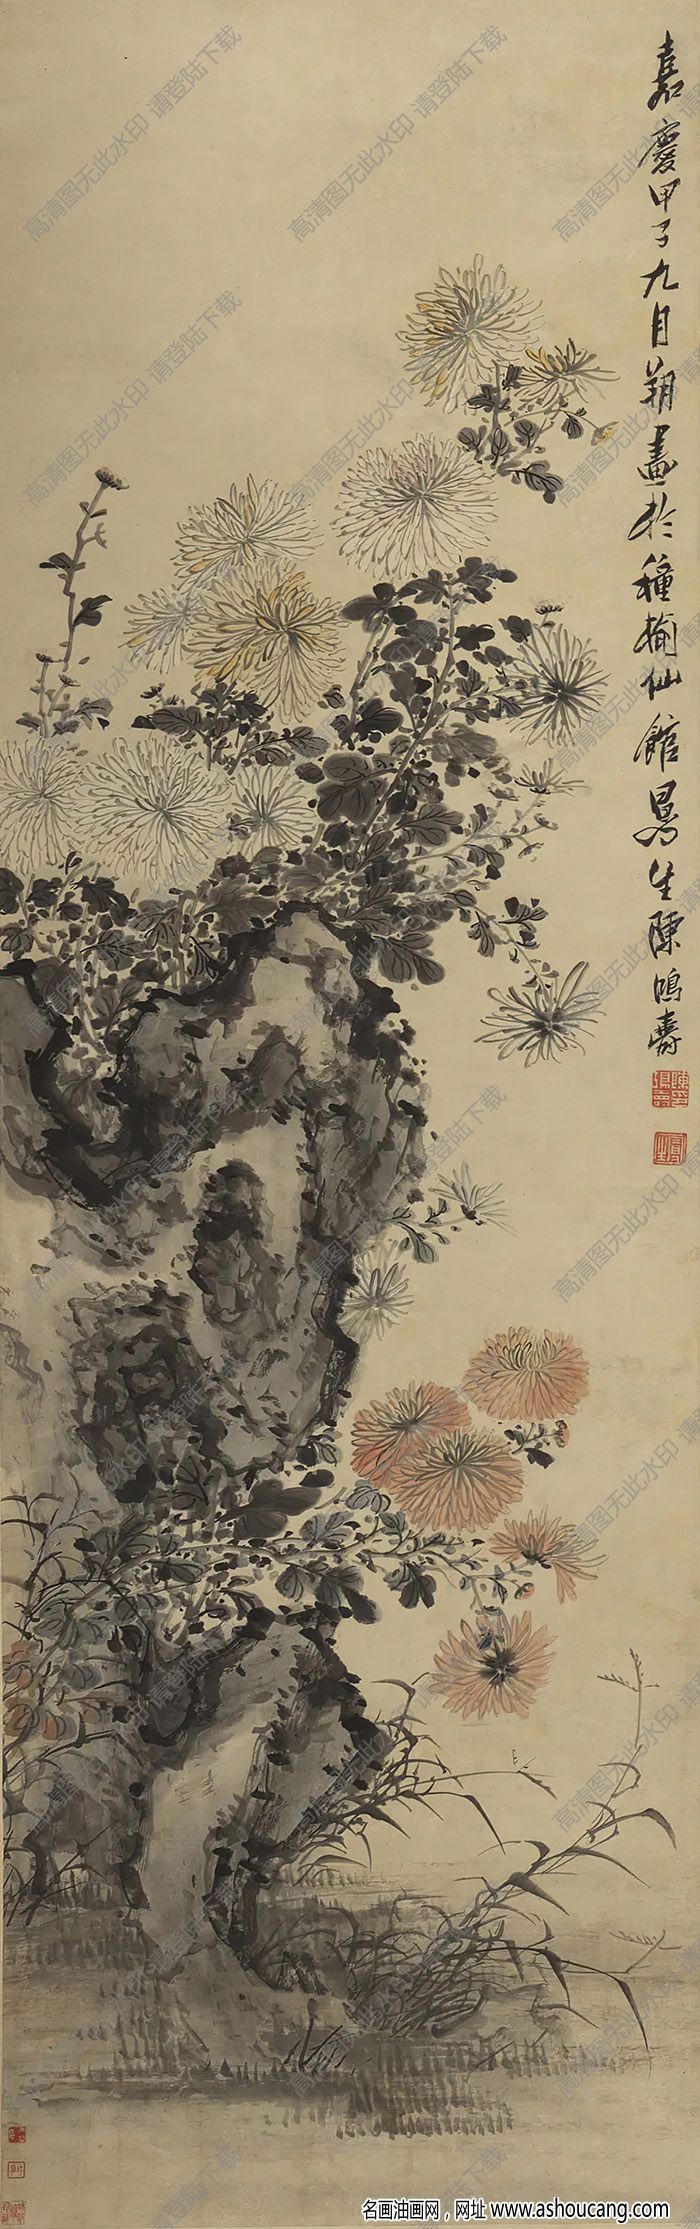 嘉慶甲子九月朔畫於種榆仙館曼生陳鴻壽
陳鴻壽印
曼生
高清图无此水印 请登陆下载
名画油画网，网址 www.ashoucang.com